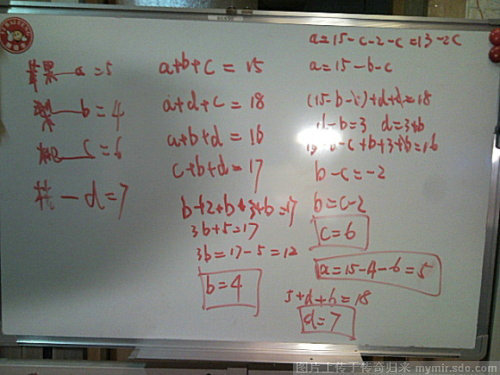 苹果—a=5
b=4
c=6
桃—d=7
a+b+c=15
a+d+c=18
a+b+d=16
c+b+d=17
b+2+b+3+b=17
3b+5=17
3b=17-5=12
b=4
a=15-c-2-c=13-2c
a=15-b-c
d-b=3 d=3+b
b-c=-2
b=c-2
c=6
a=15-4-6=5
5+d+6=18
d=7
图片上传于传奇归来 mymir.sdo.com